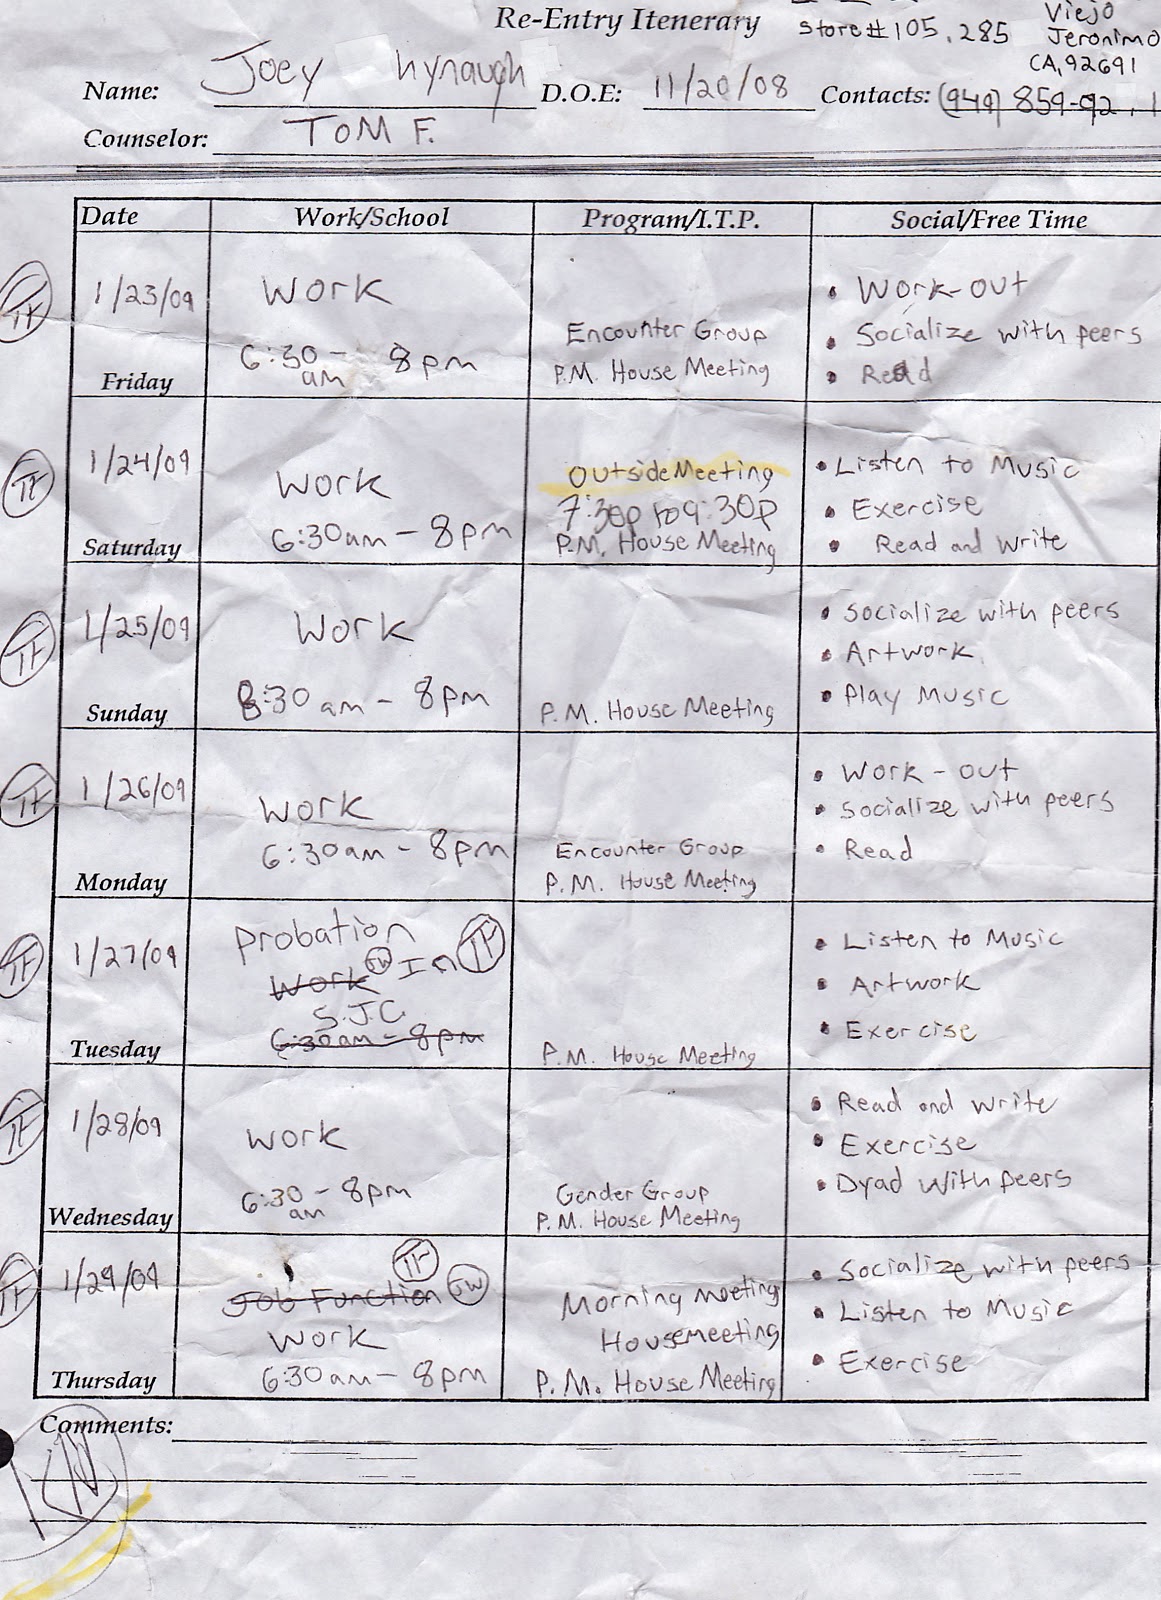 Re-Entry Itenerary
Store# 105, 285
Viejo
Jeronimo
CA, 92691
Name: Joey hynaugh
D.O.E: 11/20/08
Contacts: (949) 859-92
Counselor: TOM F.
Date Work/School Program/I.T.P. Social/Free Time
TF
1/23/09
Friday
Work
6:30 am - 8pm
Encounter Group
P.M. House Meeting
• Work-out
• Socialize with peers
• Read
TF
1/24/09
Saturday
Work
6:30am - 8pm
Outside Meeting
7:30p to 9:30p
P.M. House Meeting
• Listen to Music
• Exercise
• Read and Write
TF
1/25/09
Sunday
Work
8:30 am - 8pm
P.M. House Meeting
• Socialize with peers
• Artwork
• Play Music
TF
1/26/09
Monday
Work
6:30am - 8pm
Encounter Group
P.M. House Meeting
• Work-out
• Socialize with peers
• Read
TF
1/27/09
Tuesday
Probation
Work JW In TF
S.J.C.
6:30am - 8pm
P.M. House Meeting
• Listen to Music
• Artwork
• Exercise
TF
1/28/09
Wednesday
Work
6:30 am - 8pm
Gender Group
P.M. House Meeting
• Read and write
• Exercise
• Dyad With peers
TF
1/29/09
Thursday
TF
Job Function JW
Work
6:30am - 8pm
Morning meeting
Housemeeting
P.M. House Meeting
• Socialize with peers
• Listen to Music
• Exercise
Comments: